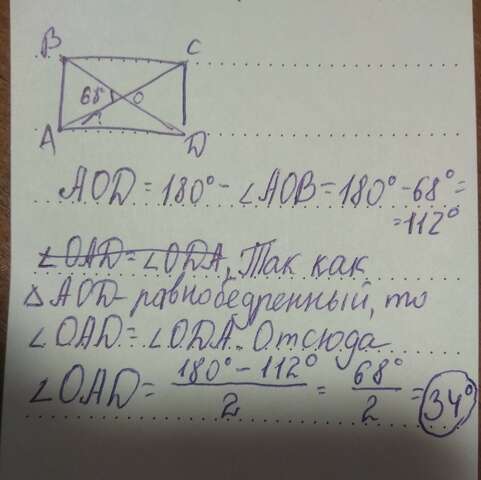 B C
68° O
A D
AOD = 180° - ∠AOB = 180° - 68° =
= 112°
∠OAD = ∠ODA, Так как
△AOD - равнобедренный, то
∠OAD = ∠ODA. Отсюда
∠OAD = (180° - 112°)/2 = 68°/2 = 34°